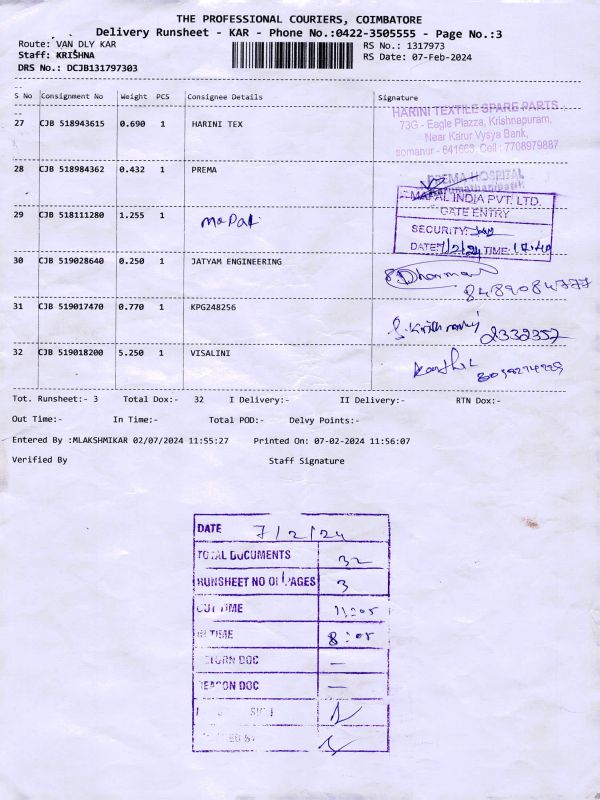 THE PROFESSIONAL COURIERS, COIMBATORE
Delivery Runsheet - KAR - Phone No.:0422-3505555 - Page No.:3
Route: VAN DLY KAR RS No.: 1317973
Staff: KRISHNA RS Date: 07-Feb-2024
DRS No.: DCJB131797303
S No Consignment No Weight PCS Consignee Details Signature
27 CJB 518943615 0.690 1 HARINI TEX
HARINI TEXTILE SPARE PARTS
73G - Eagle Plazza, Krishnapuram,
Near Karur Vysya Bank,
somanur - 641668, Cell : 7708979887
28 CJB 518984362 0.432 1 PREMA
PREMA HOSPITAL
29 CJB 518111280 1.255 1 mapal
MAPAL INDIA PVT. LTD.
GATE ENTRY
SECURITY:
DATE 7/2/24 TIME:
30 CJB 519028640 0.250 1 JATYAM ENGINEERING
8489084777
31 CJB 519017470 0.770 1 KPG248256
2332357
32 CJB 519018200 5.250 1 VISALINI
Tot. Runsheet:- 3 Total Dox:- 32 I Delivery:- II Delivery:- RTN Dox:-
Out Time:- In Time:- Total POD:- Delvy Points:-
Entered By :MLAKSHMIKAR 02/07/2024 11:55:27 Printed On: 07-02-2024 11:56:07
Verified By Staff Signature
DATE 7/2/24
TOTAL DOCUMENTS 32
RUNSHEET NO OF PAGES 3
OUT TIME 11:05
IN TIME 8:05
RETURN DOC —
REASON DOC —